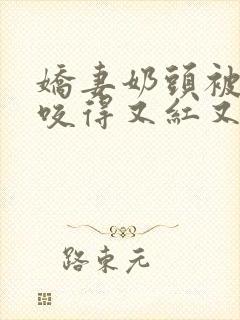 嬌妻奶頭被
咬得又紅又
路東元